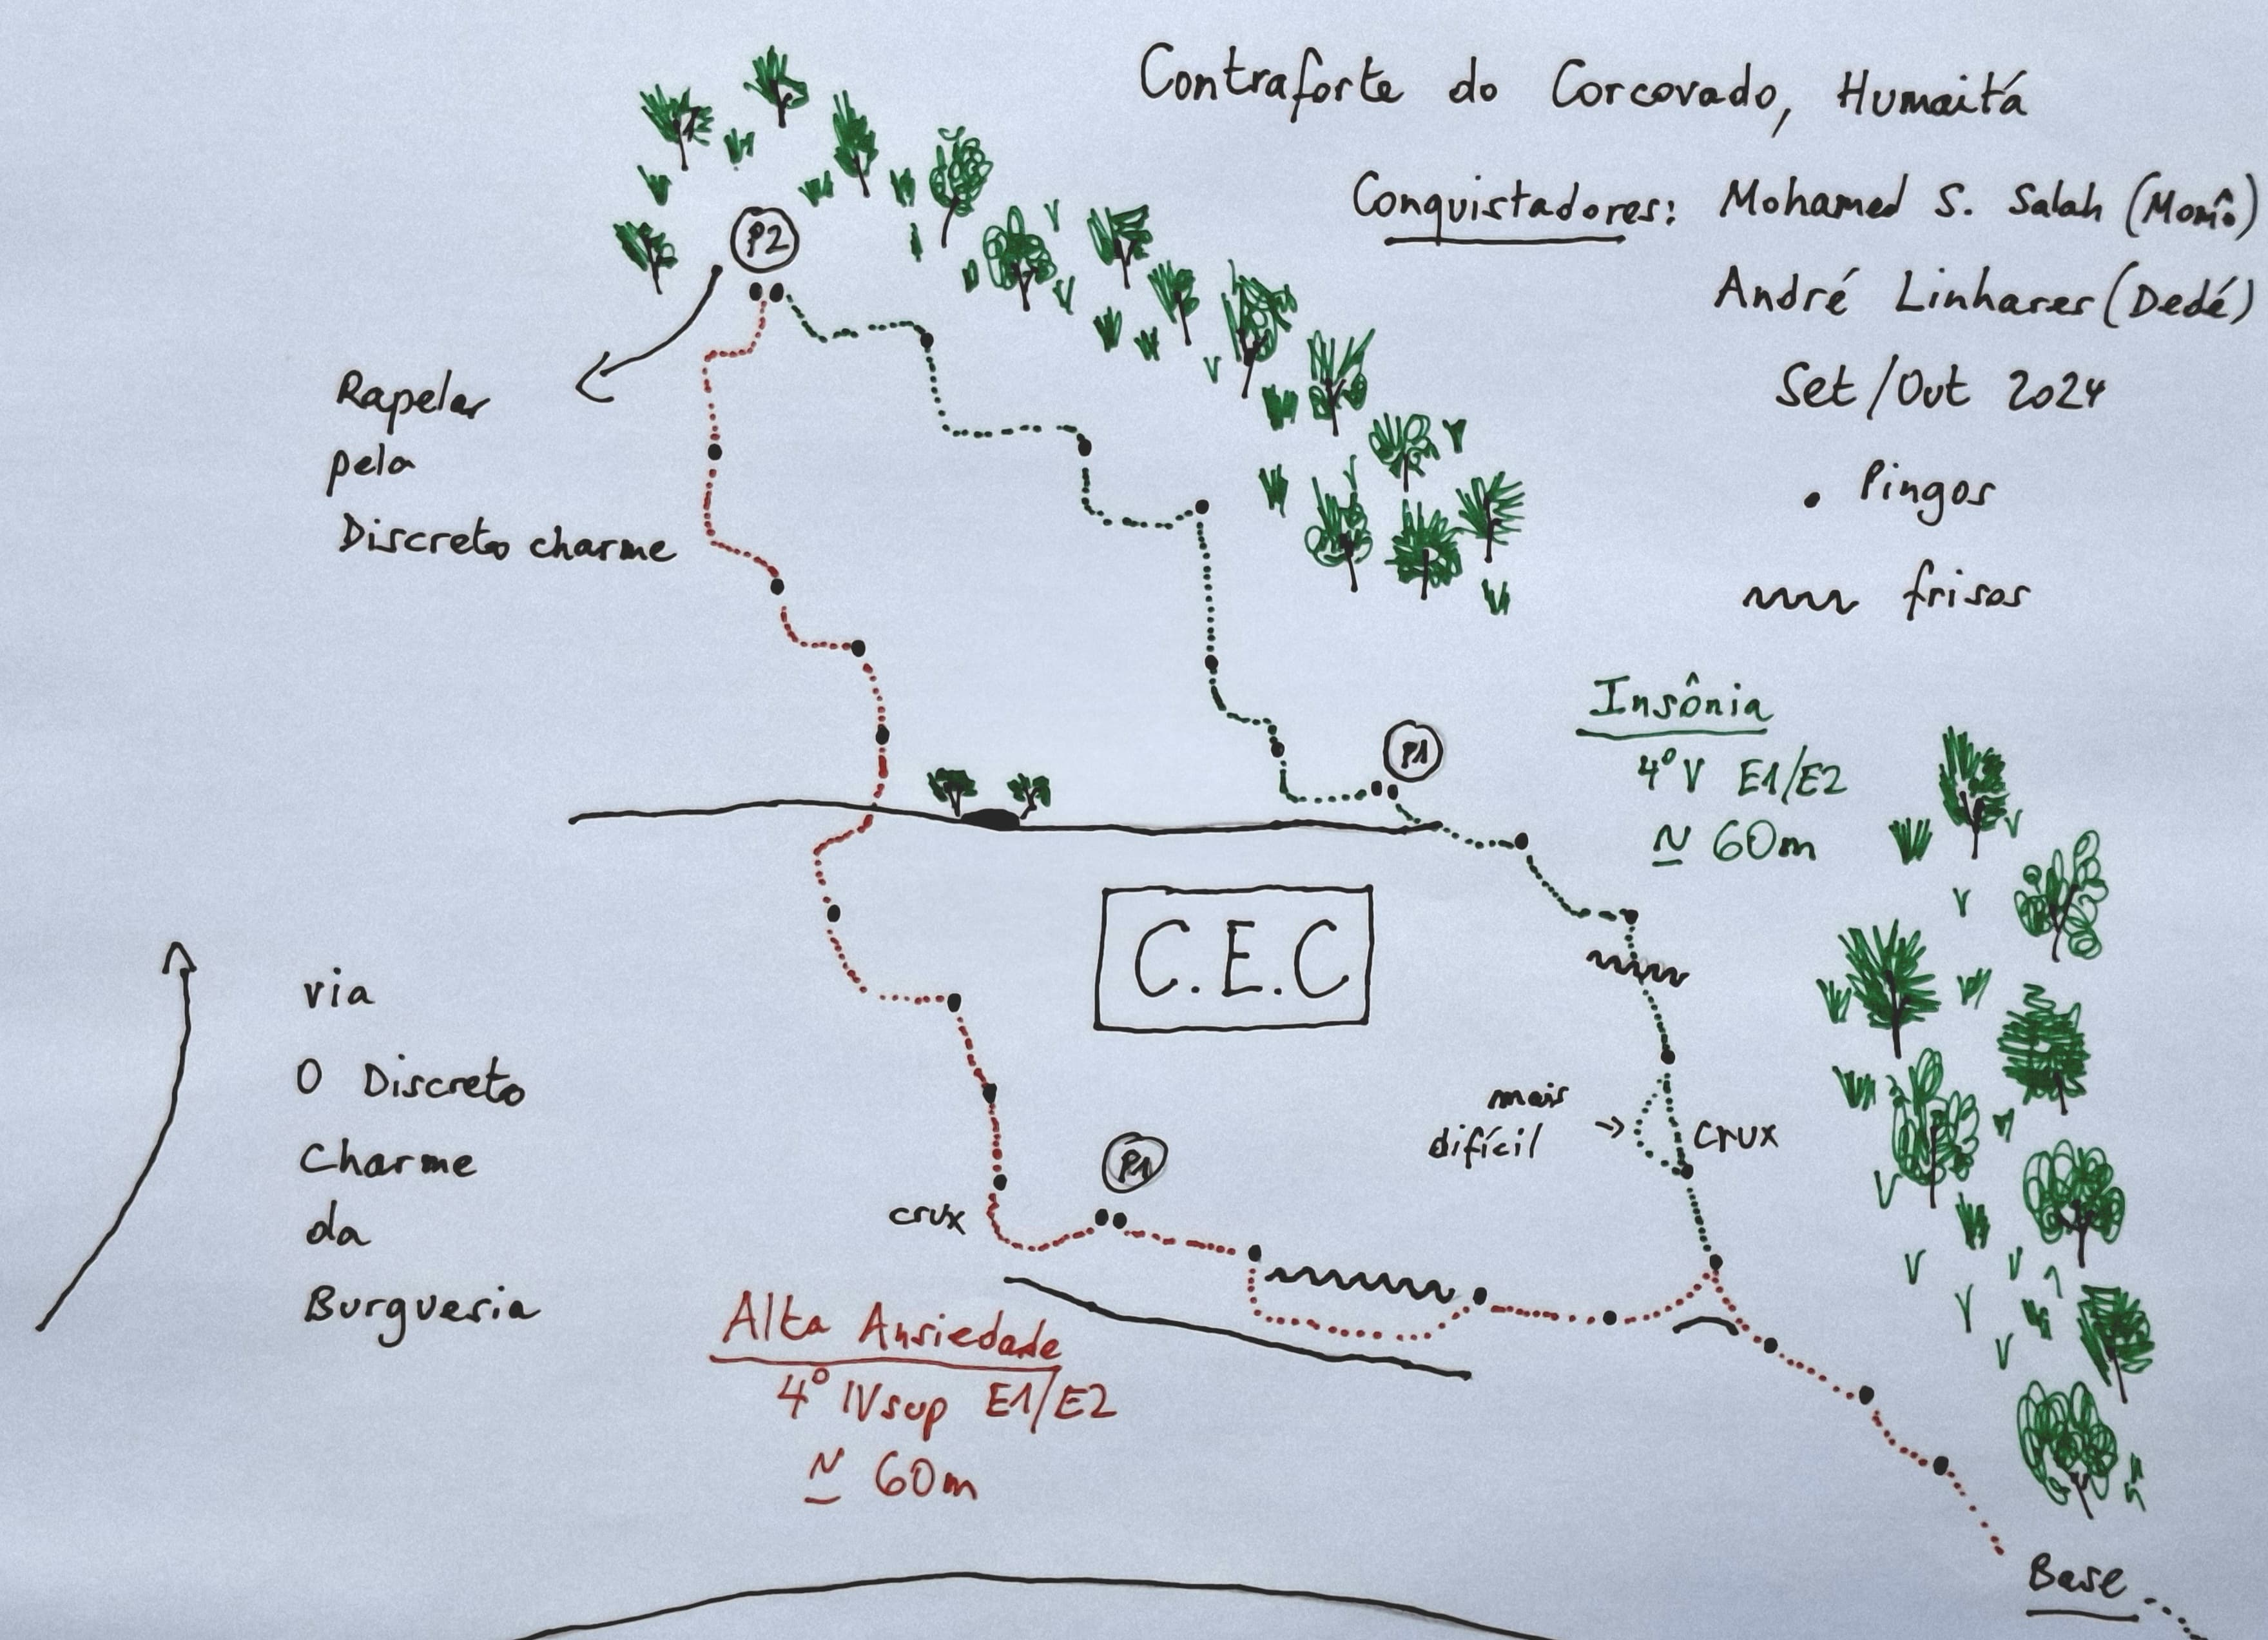 Contraforte do Corcovado, Humaitá
Conquistadores: Mohamed S. Salah (Momô)
André Linhares (Dedé)
Set/Out 2024
Pingos
frisos
P2
Rapelar
pela
Discreto charme
P1
Insônia
4º V E1/E2
≃ 60m
C.E.C
mais
difícil
crux
via
O Discreto
Charme
da
Burguesia
P1
crux
Alta Ansiedade
4º IVsup E1/E2
≃ 60m
Base